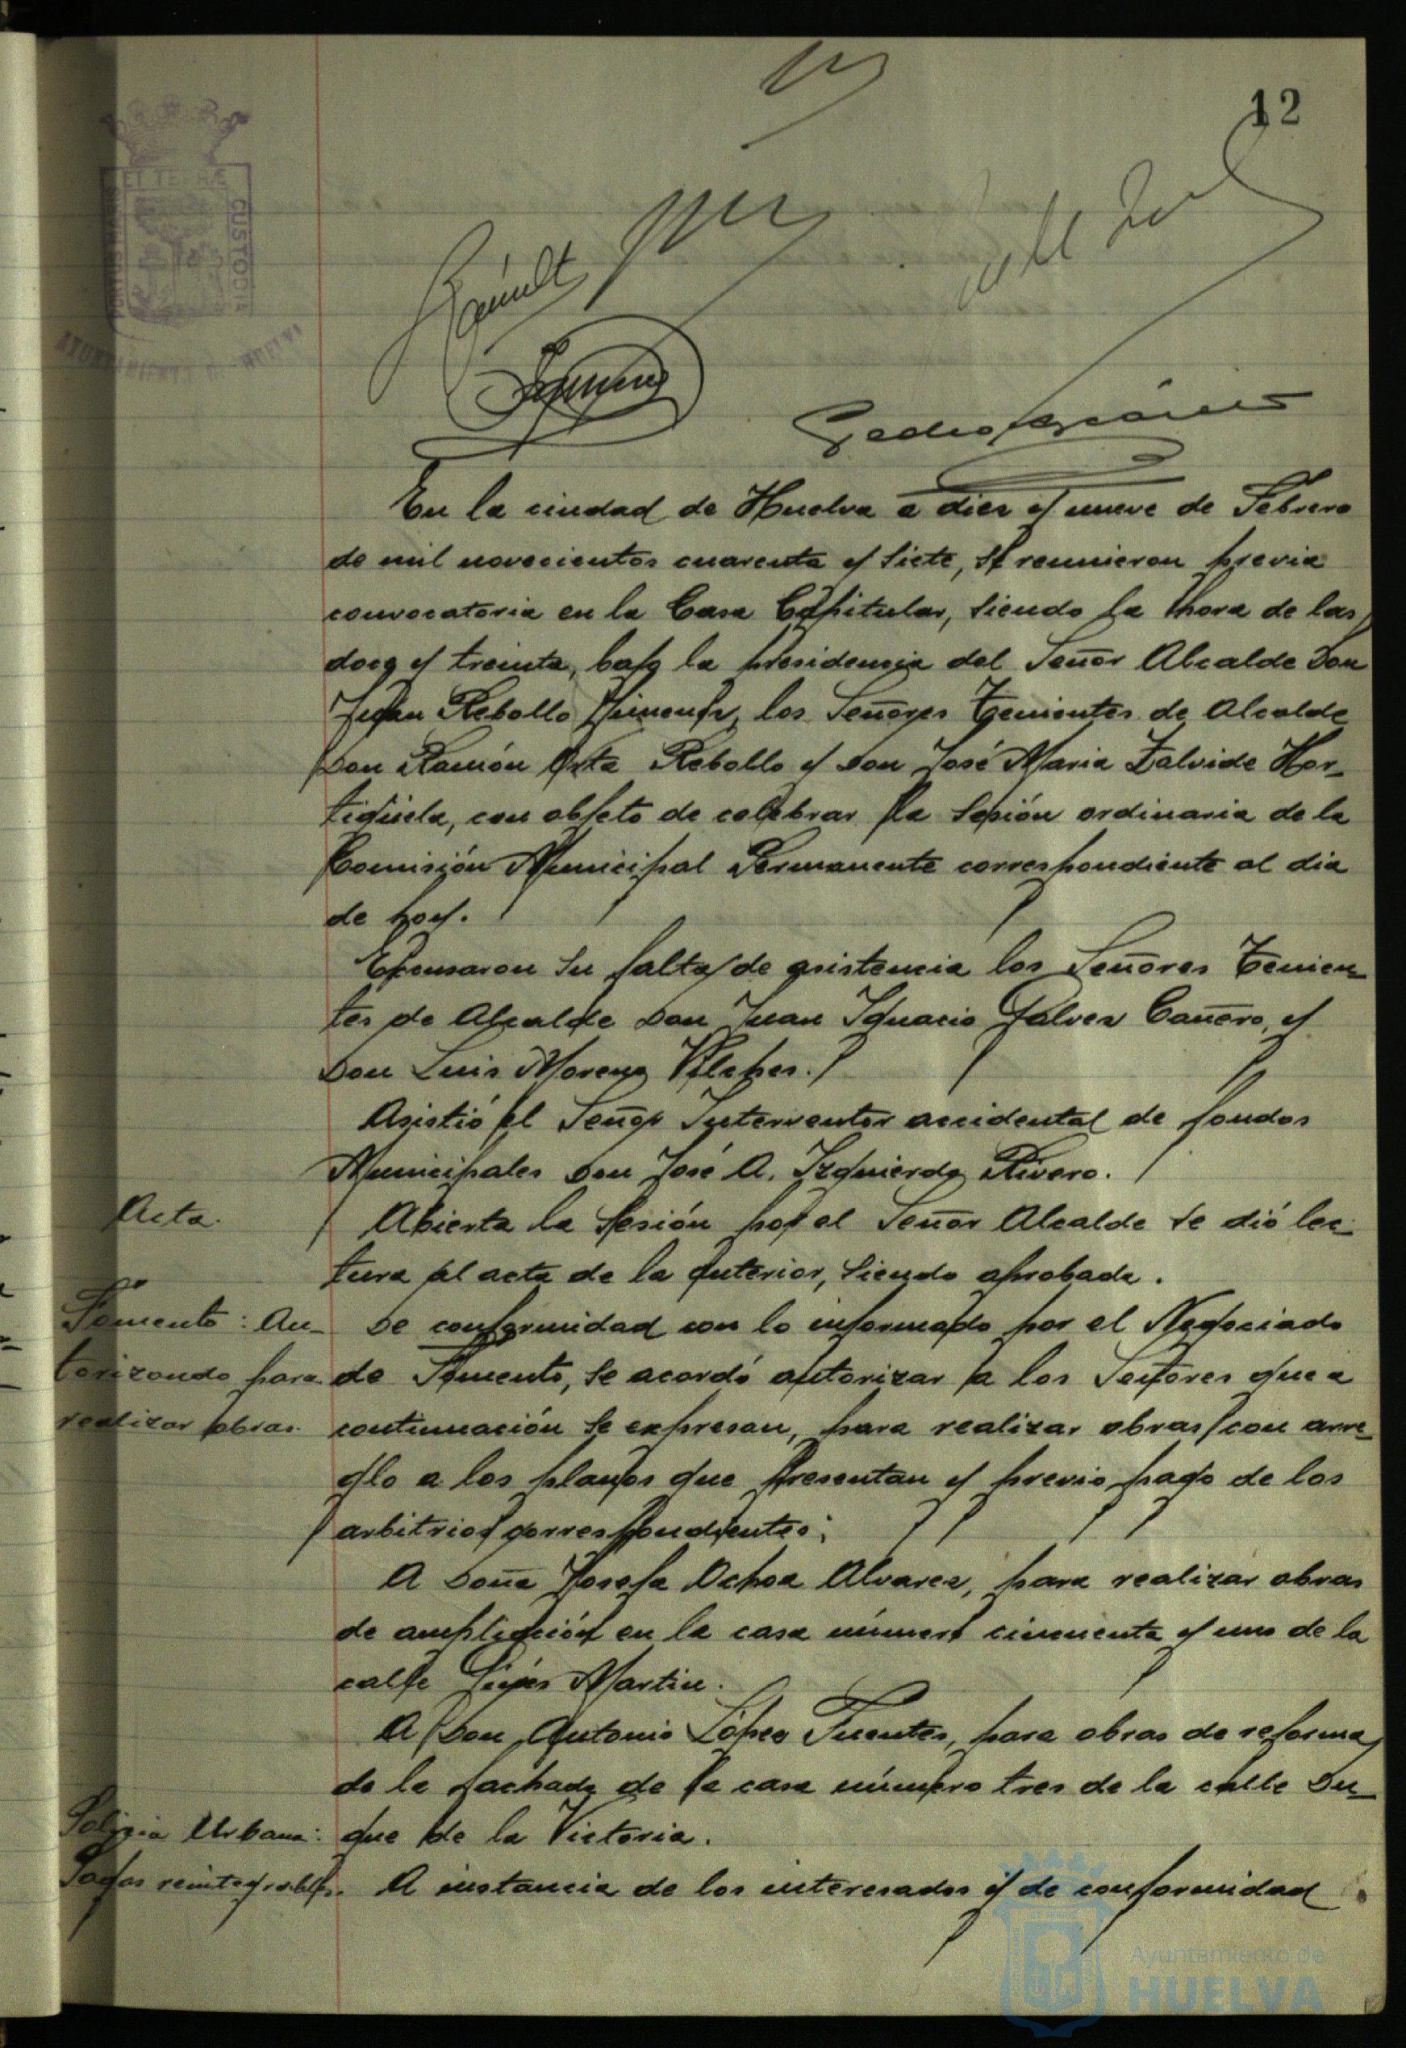 12
ET TERRÆ
CUSTODIA
En la ciudad de Huelva a diez y nueve de Febrero
de mil novecientos cuarenta y siete, se reunieron previa
convocatoria en la Casa Capitular, siendo la hora de las
doce y treinta, bajo la presidencia del Señor Alcalde Don
Juan Rebollo Jimenez, los Señores Tenientes de Alcalde
Don Ramón Orta Rebollo y Don José Maria Zalvide Hor-
tigüela, con objeto de celebrar la sesión ordinaria de la
Comisión Municipal Permanente correspondiente al dia
de hoy.
Excusaron su falta de asistencia los Señores Tenien-
tes de Alcalde Don Juan Ignacio Galvez Cañero, y
Don Luis Moreno Vilches.
Asistió el Señor Interventor accidental de fondos
Municipales Don José A. Izquierdo Rivero.
Acta.
Abierta la sesión por el Señor Alcalde se dió lec-
tura al acta de la anterior, siendo aprobada.
Fomento: Au-
torizando para
realizar obras.
De conformidad con lo informado por el Negociado
de Fomento, se acordó autorizar a los Señores que a
continuación se expresan, para realizar obras con arre-
glo a los planos que presentan y previo pago de los
arbitrios correspondientes:
A Doña Josefa Ochoa Alvarez, para realizar obras
de ampliación en la casa número cincuenta y uno de la
calle Ginés Martin.
A Don Antonio López Fuentes, para obras de reforma
de la fachada de la casa número tres de la calle Du-
que de la Victoria.
Policia Urbana:
Pagos reintegrables.
A instancia de los interesados y de conformidad
Ayuntamiento de
HUELVA